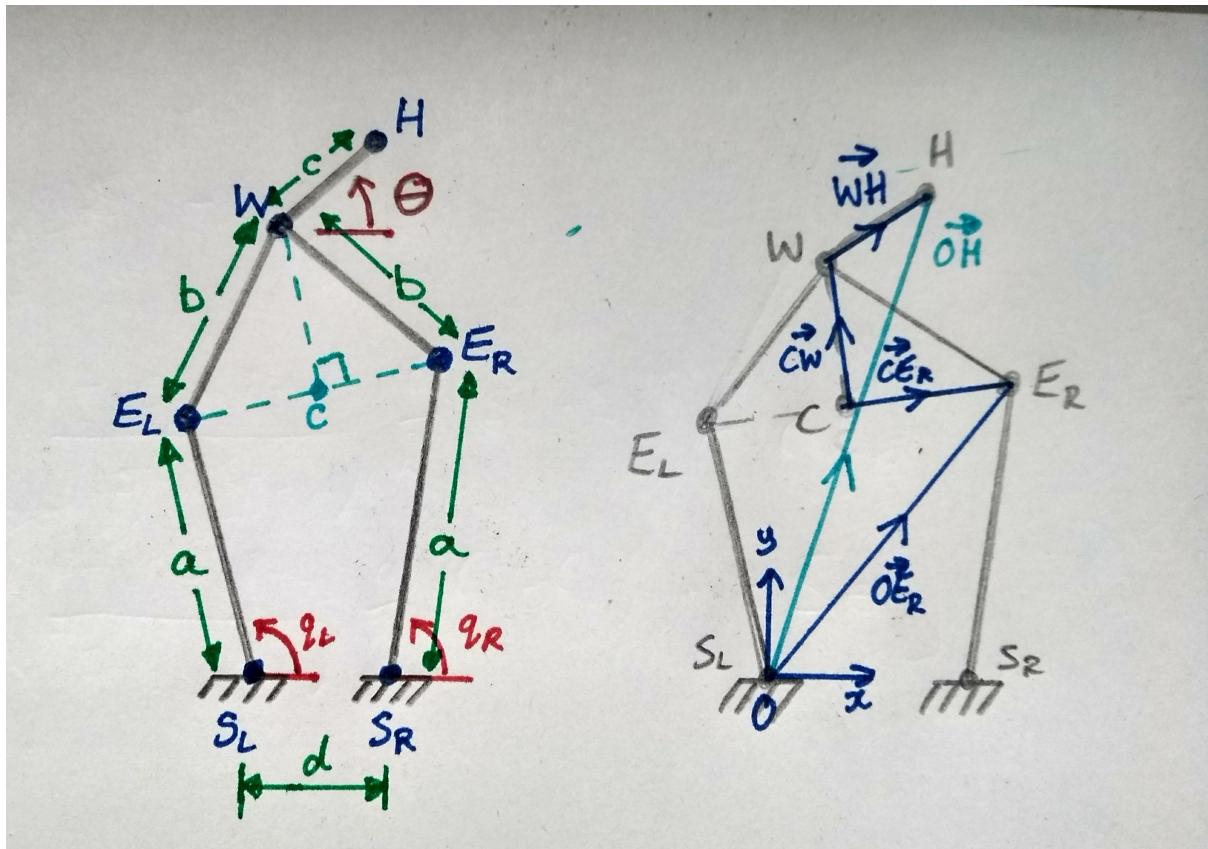 H
c
W
θ
b
b
E_R
E_L
C
a
a
q_L
q_R
S_L
S_R
d
H
→
WH
W
→
OH
→
CW
→
CE_R
E_R
C
E_L
y
→
OE_R
S_L
S_R
O
x